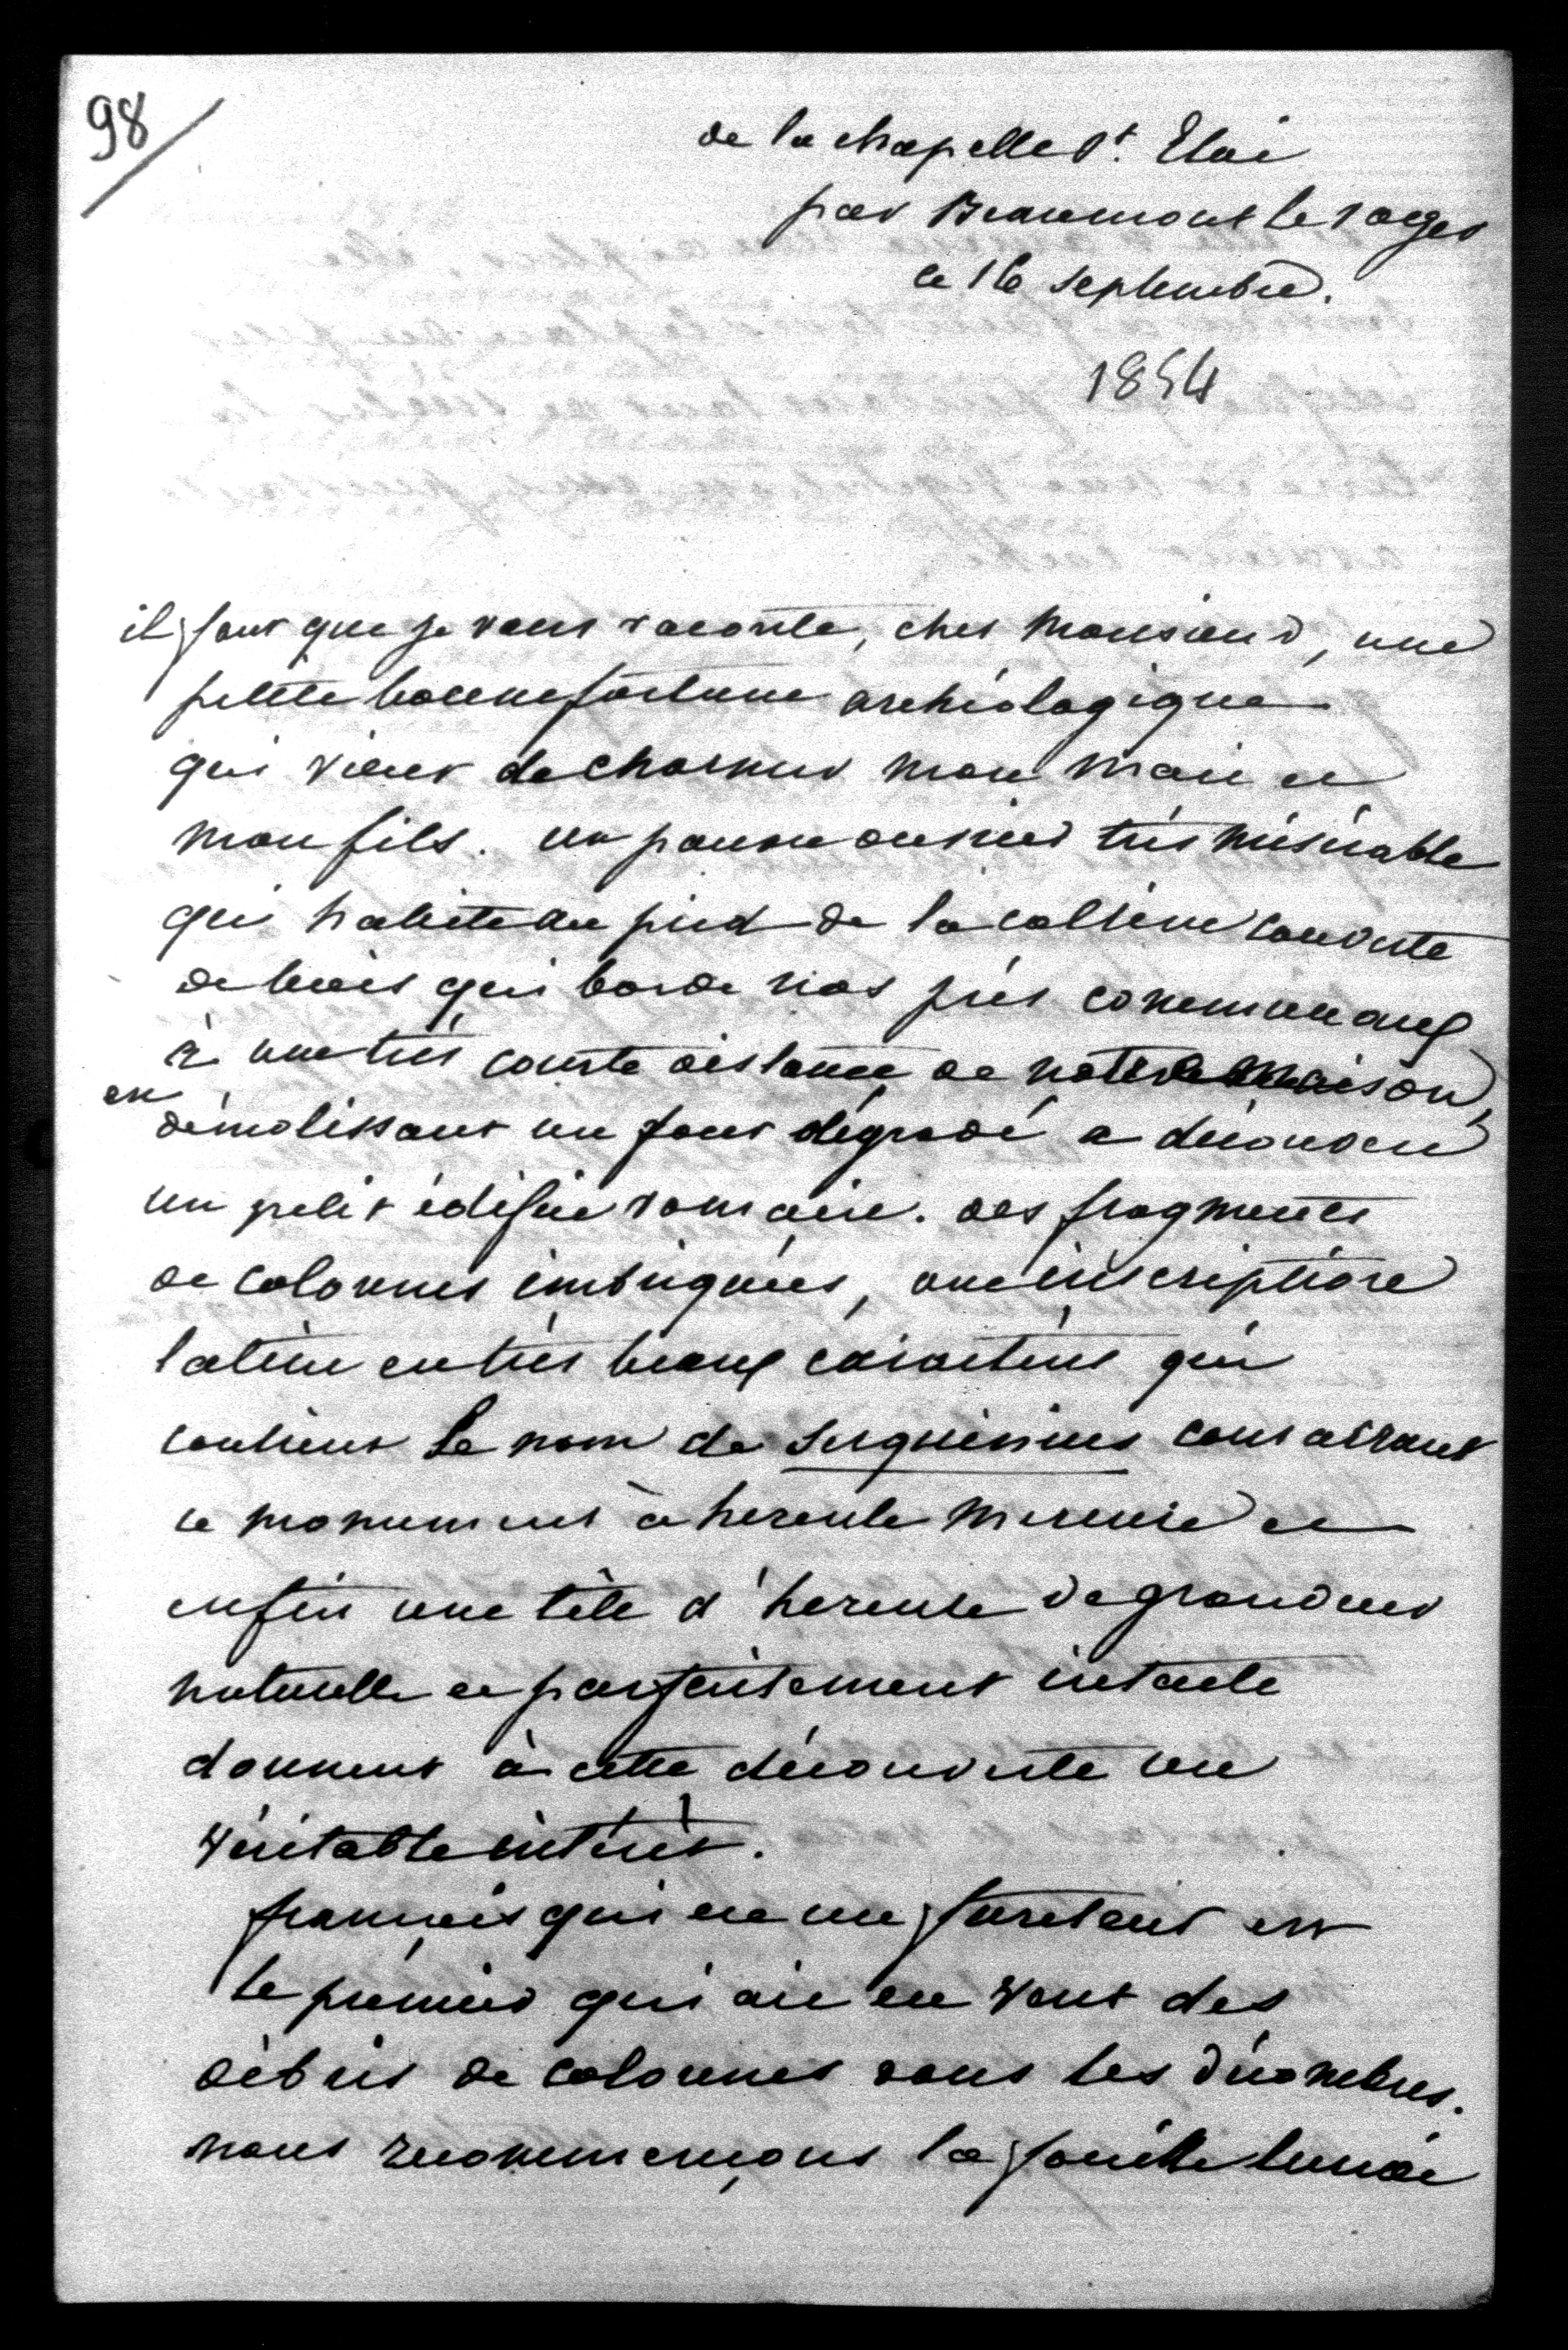 98
de la chapelle St. Eloi
par Beaumont le roger
ce 16 septembre.
1854
il faut que je vous raconte, cher Monsieur, une
petite bonne fortune archéologique
qui vient de charmer mon mari et
mon fils. un pauvre ouvrier très misérable
qui habite au pied de la colline couverte
de bois qui borde nos prés communaux
à une très courte distance de notre maison,
en
démolissant un four dégradé a découvert
un petit édifice romain. des fragments
de colonnes imbriquées, une inscription
latine en très beaux caractères qui
contient le nom de Serquinius consacrant
ce monument à hercule Mercure et
enfin une tête d'hercule de grandeur
naturelle et parfaitement intacte
donnent à cette découverte un
véritable intérêt.
françois qui est un fureteur est
le premier qui ait vu des
débris de colonnes sous les décombres.
nous recommençons la fouille lundi